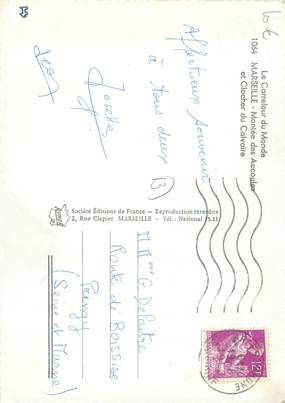 Le Carrefour du Monde
1064 MARSEILLE - Montée des Accoules
et Clocher du Calvaire
10 €
Affectueux souvenir
à tous deux
Josette
13
Société Éditions de France — Reproduction interdite
2, Rue Clapier MARSEILLE - Tél.: National 15.11
M Mme G Delaitre
Route de Boissise
Pringy
(Seine et Marne)
12F